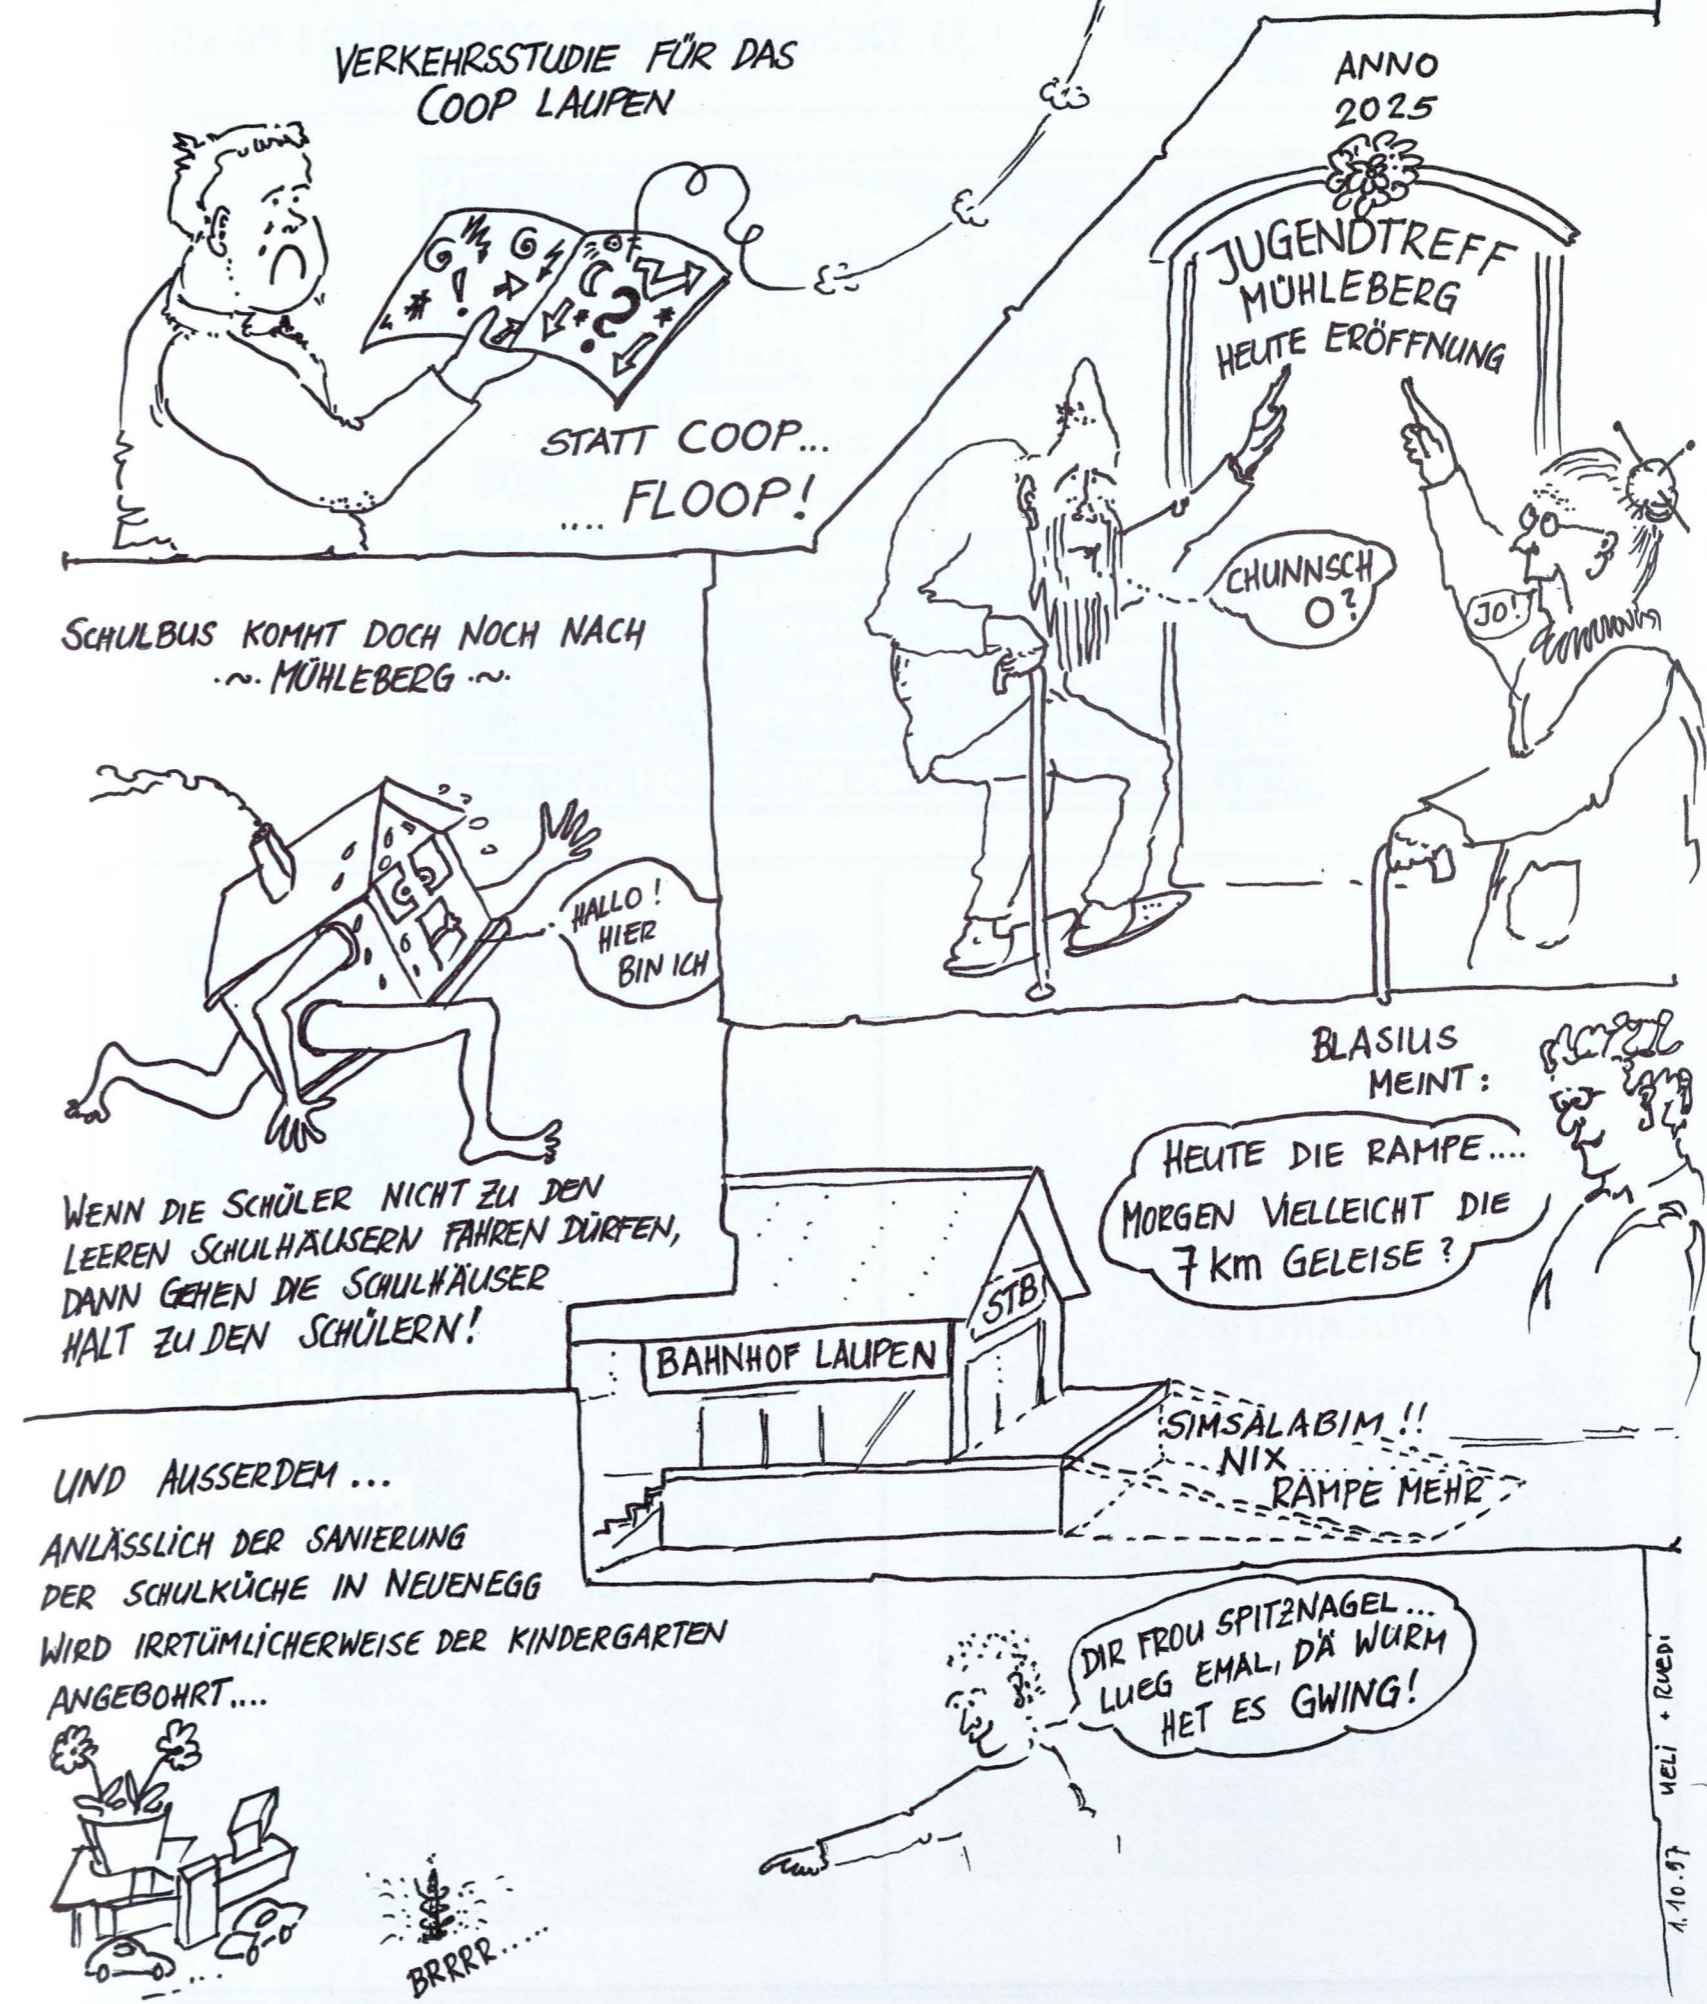 VERKEHRSSTUDIE FÜR DAS
COOP LAUPEN
STATT COOP...
.... FLOOP!
ANNO
2025
JUGENDTREFF
MÜHLEBERG
HEUTE ERÖFFNUNG
CHUNNSCH
O?
JO!
SCHULBUS KOMMT DOCH NOCH NACH
·~· MÜHLEBERG ·~·
HALLO!
HIER
BIN ICH
WENN DIE SCHÜLER NICHT ZU DEN
LEEREN SCHULHÄUSERN FAHREN DÜRFEN,
DANN GEHEN DIE SCHULHÄUSER
HALT ZU DEN SCHÜLERN!
BLASIUS
MEINT:
HEUTE DIE RAMPE....
MORGEN VIELLEICHT DIE
7 km GELEISE?
STB
BAHNHOF LAUPEN
SIMSALABIM!!
NIX
RAMPE MEHR
UND AUSSERDEM...
ANLÄSSLICH DER SANIERUNG
DER SCHULKÜCHE IN NEUENEGG
WIRD IRRTÜMLICHERWEISE DER KINDERGARTEN
ANGEBOHRT....
DIR FROU SPITZNAGEL...
LUEG EMAL, DÄ WURM
HET ES GWING!
BRRRR.....
1.10.97 UELI + RUEDI